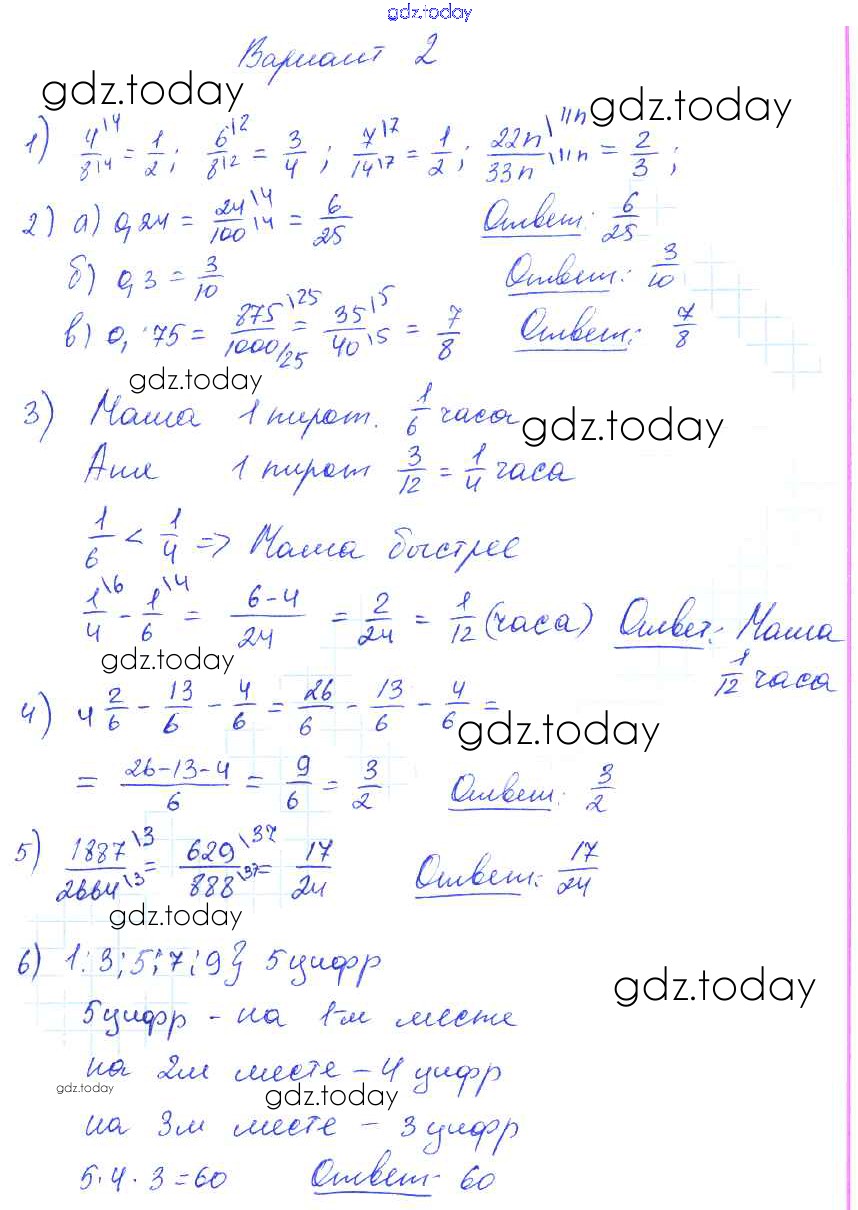 gdz.today
Вариант 2
gdz.today
gdz.today
1) 4\4/8\4 = 1/2; 6\2/8\2 = 3/4; 7\7/14\7 = 1/2; 22n\11n/33n\11n = 2/3;
2) а) 0,24 = 24\4/100\4 = 6/25 Ответ: 6/25
б) 0,3 = 3/10 Ответ: 3/10
в) 0, 75 = 875\25/1000/25 = 35\5/40\5 = 7/8 Ответ: 7/8
gdz.today
3) Маша 1 пирож. 1/6 часа
gdz.today
Аня 1 пирож 3/12 = 1/4 часа
1/6 < 1/4 => Маша быстрее
1\6/4 - 1\4/6 = 6-4/24 = 2/24 = 1/12 (часа) Ответ: Маша
1/12 часа
gdz.today
4) 4 2/6 - 13/6 - 4/6 = 26/6 - 13/6 - 4/6 =
gdz.today
= 26-13-4/6 = 9/6 = 3/2 Ответ: 3/2
5) 1887\3/2664\3 = 629\37/888\37 = 17/24 Ответ: 17/24
gdz.today
6) 1; 3; 5; 7; 9} 5 цифр
gdz.today
5 цифр - на 1-м месте
на 2м месте - 4 цифр
gdz.today
gdz.today
на 3м месте - 3 цифр
5·4·3=60 Ответ 60